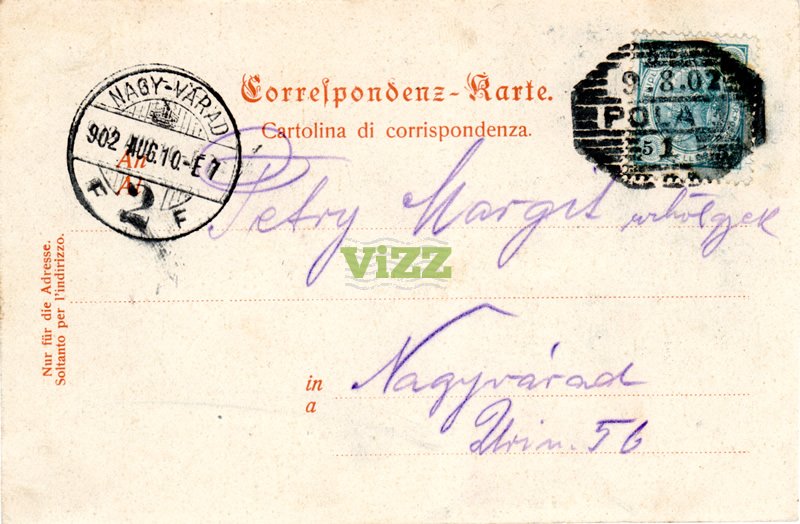 Correspondenz-Karte.
Cartolina di corrispondenza.
NAGY-VÁRAD
902 AUG.10.-E 7
F 2 F
9 8.02
POLA
5 1
An
A
Petry Margit
ViZZ
in Nagyvárad
a
56
Nur für die Adresse.
Soltanto per l'indirizzo.